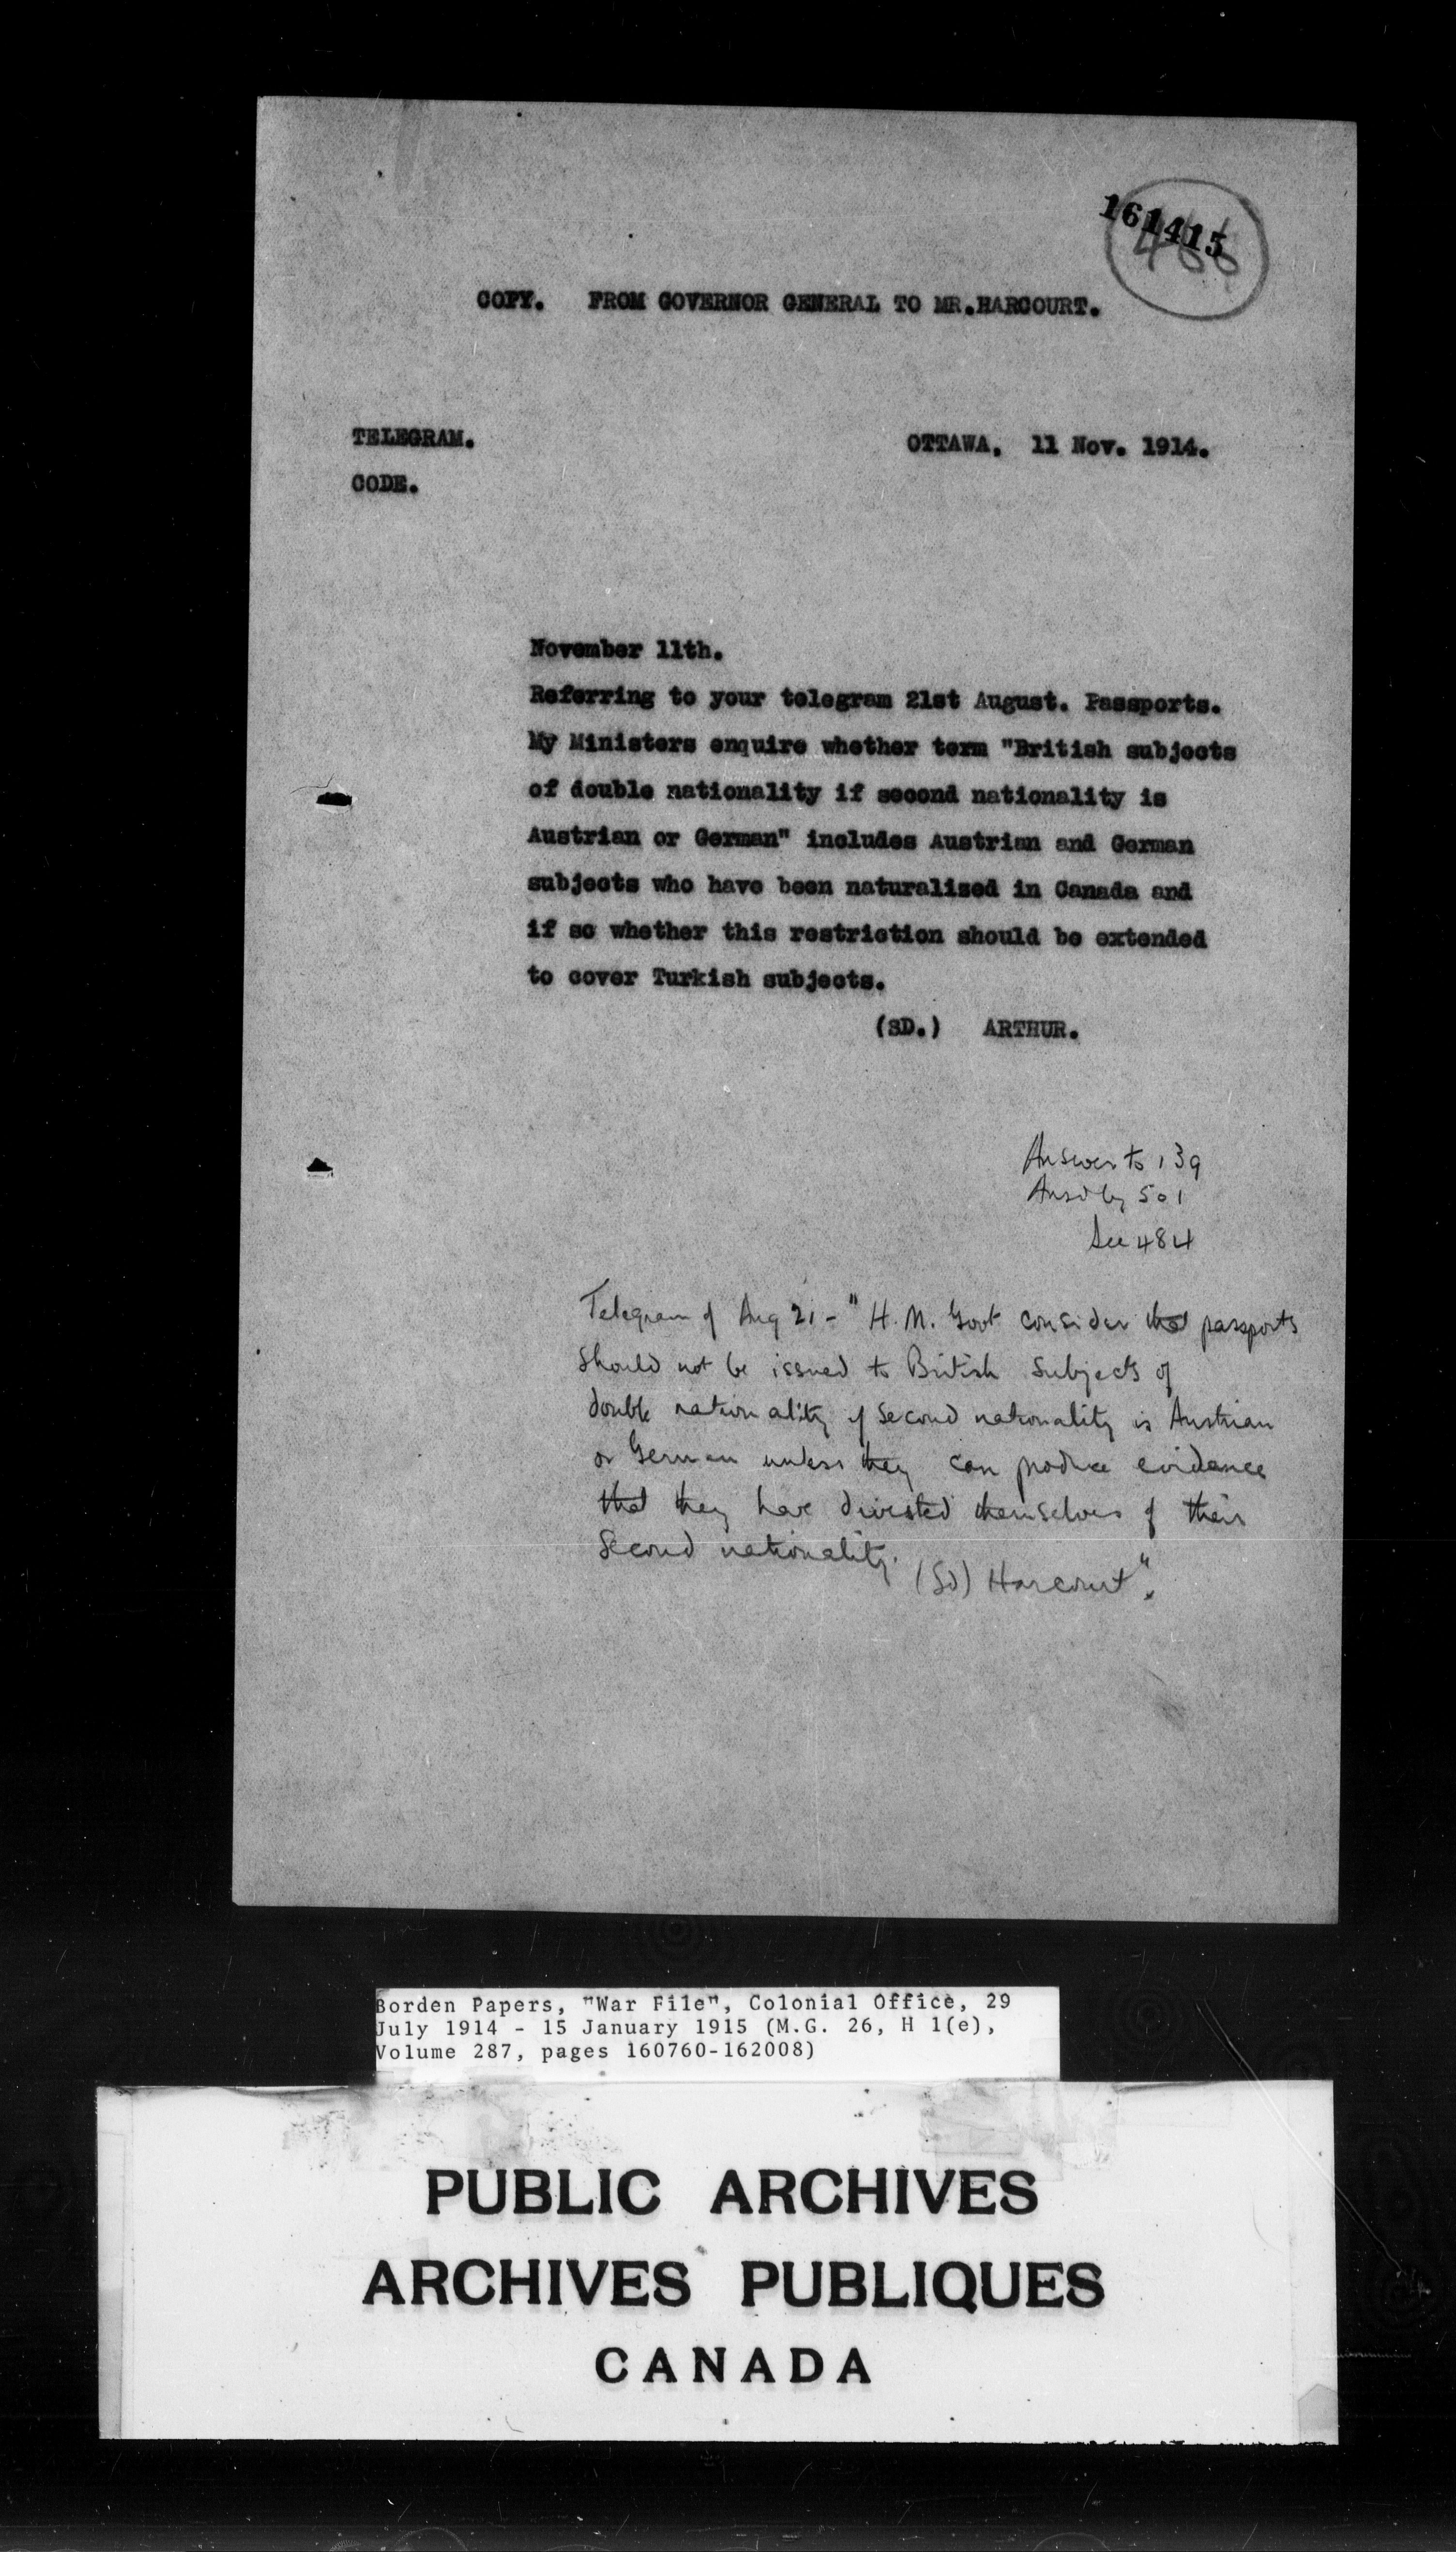 161415
466
COPY. FROM GOVERNOR GENERAL TO MR.HARCOURT.
TELEGRAM. OTTAWA, 11 Nov. 1914.
CODE.
November 11th.
Referring to your telegram 21st August. Passports.
My Ministers enquire whether term "British subjects
of double nationality if second nationality is
Austrian or German" includes Austrian and German
subjects who have been naturalised in Canada and
if so whether this restriction should be extended
to cover Turkish subjects.
(SD.) ARTHUR.
Answer to 139
Ansd by 501
See 484
Telegram of Aug 21 - "H.M. Govt consider that passports
should not be issued to British subjects of
double nationality if second nationality is Austrian
or German unless they can produce evidence
that they have divested themselves of their
second nationality.
(Sd) Harcourt".
Borden Papers, "War File", Colonial Office, 29
July 1914 - 15 January 1915 (M.G. 26, H 1(e),
Volume 287, pages 160760-162008)
PUBLIC ARCHIVES
ARCHIVES PUBLIQUES
CANADA